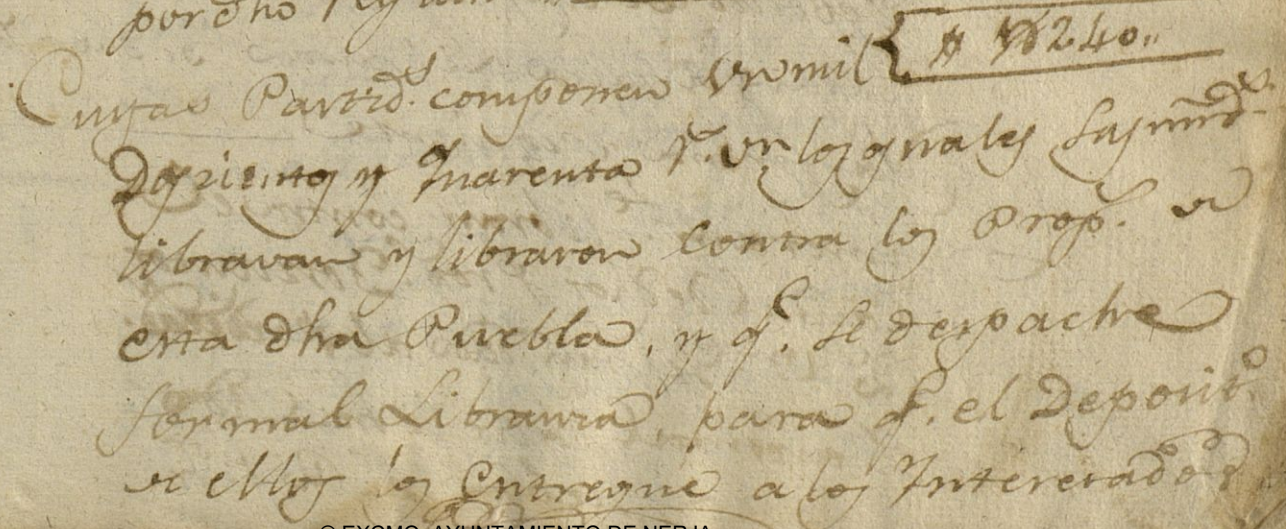 por dho
Cuyas Partid.s componen un mil { # 1240..
Doscientos y Quarenta r.s vn. los quales Sus mrd.s
libravan y libraron contra los Prop.s de
esta dha Puebla, y q.e se despache
formal Libranza, para q.e el Deposit.o
de ellos los entregue a los Interesados
© EXCMO. AYUNTAMIENTO DE NERJA